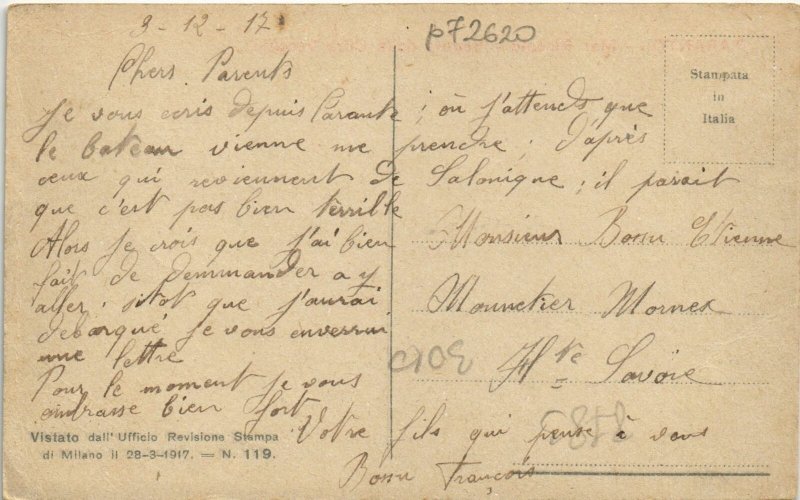 3-12-17
p72620
Chers Parents
Stampata
in
Italia
Je vous ecris depuis Tarante ; où j'attends que
le bateau vienne me prendre ; d'après
ceux qui reviennent de Salonique ; il parait
que c'est pas bien terrible
Alors je crois que j'ai bien
fait de demmander a y
aller. sitot que j'aurai
debarqué je vous enverrai
une lettre
Pour le moment je vous
embrasse bien fort
Votre fils qui pense à vous
Bossu François
Monsieur Bossu Etienne
Monnetier Mornex
Hte Savoie
Vistato dall' Ufficio Revisione Stampa
di Milano il 28-3-1917. — N. 119.